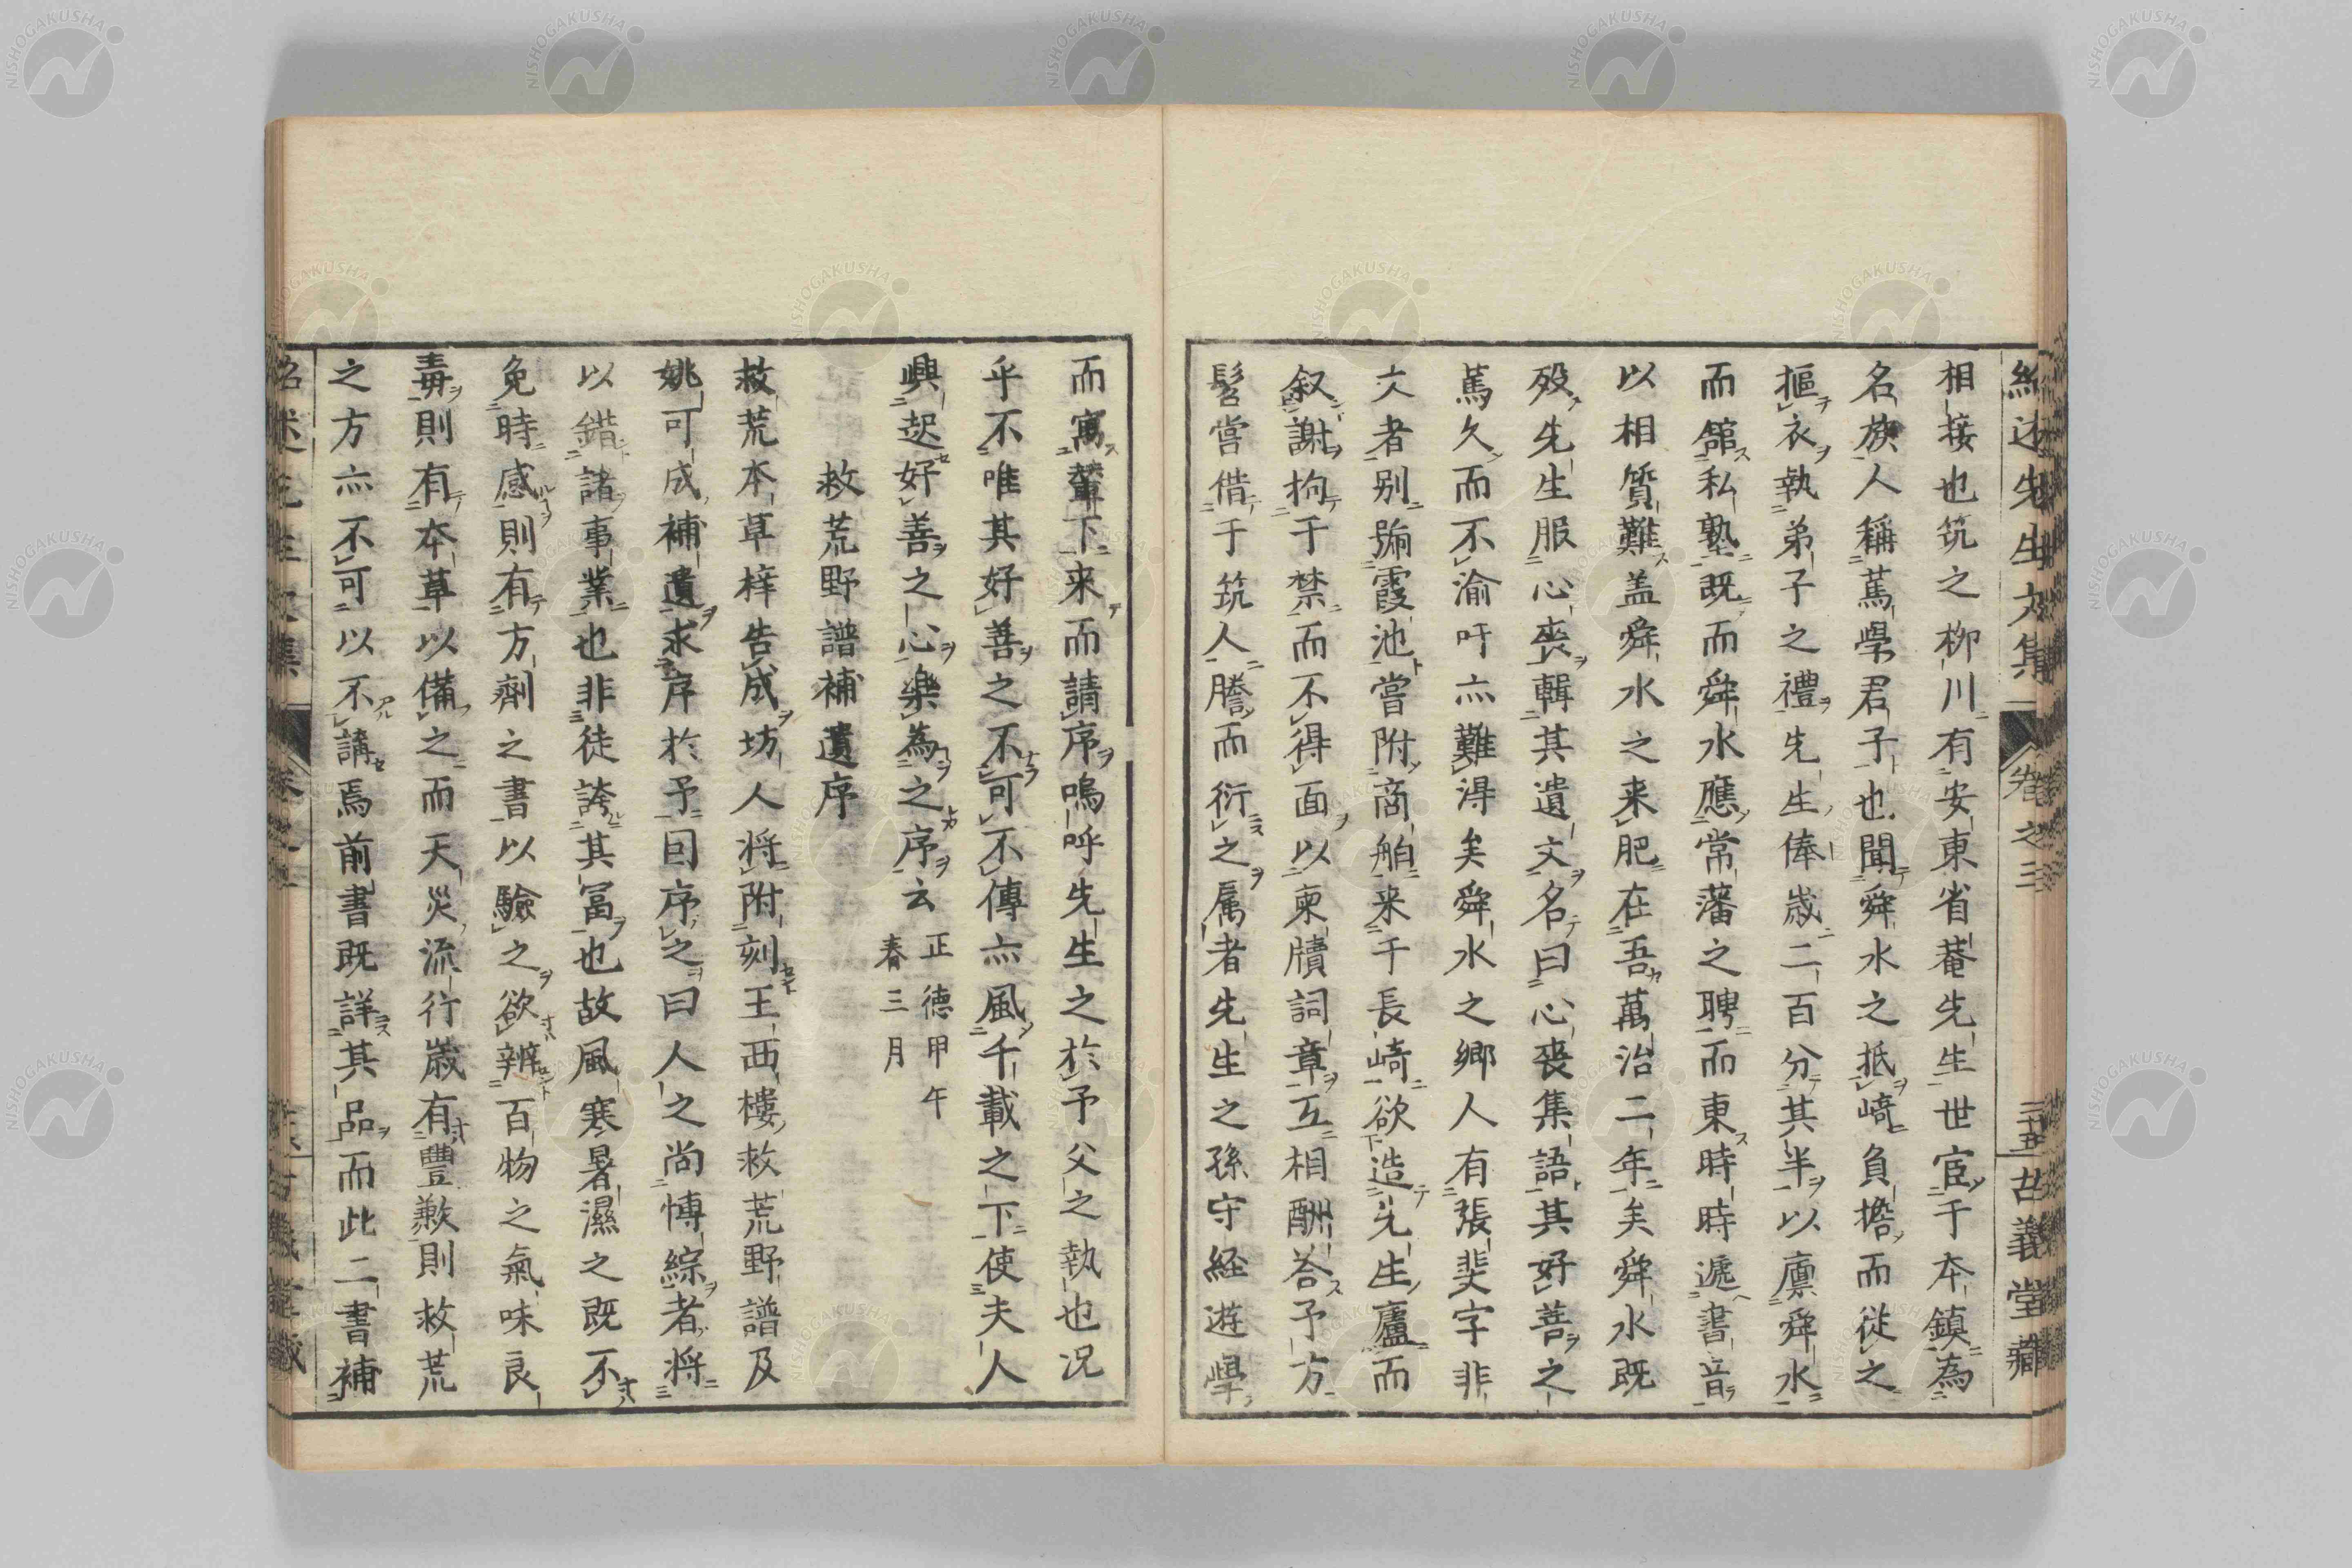 紹述先生文集 卷之三 二十五 古義堂藏
相接也筑之柳川有安東省菴先生世宦于本鎮為
名族人稱篤學君子也聞舜水之抵崎負擔而従之
摳衣執弟子之禮先生俸歳二百分其半以廩舜水
而舘私塾既而舜水應常藩之聘而東時時遞書音
以相質難盖舜水之来肥在吾萬治二年矣舜水既
殁先生服心喪輯其遺文名曰心喪集語其好善之
篤久而不渝吁亦難得矣舜水之郷人有張斐字非
文者别號霞池嘗附商舶来于長崎欲造先生廬而
叙謝拘于禁而不得面以柬牘詞章互相酬荅予方
髫嘗借于筑人謄而衍之属者先生之孫守経遊學
而寓輦下来而請序嗚呼先生之於予父之執也况
乎不唯其好善之不可不傳亦風千載之下使夫人
興起好善之心樂為之序云 正德甲午
春三月
救荒野譜補遺序
救荒本草梓告成坊人将附刻王西樓救荒野譜及
姚可成補遺求序於予囙序之曰人之尚博綜者将
以錯諸事業也非徒誇其冨也故風寒暑濕之既不
免時感則有方劑之書以驗之欲辨百物之氣味良
毒則有本草以備之而天災流行歳有豐歉則救荒
之方亦不可以不講焉前書既詳其品而此二書補